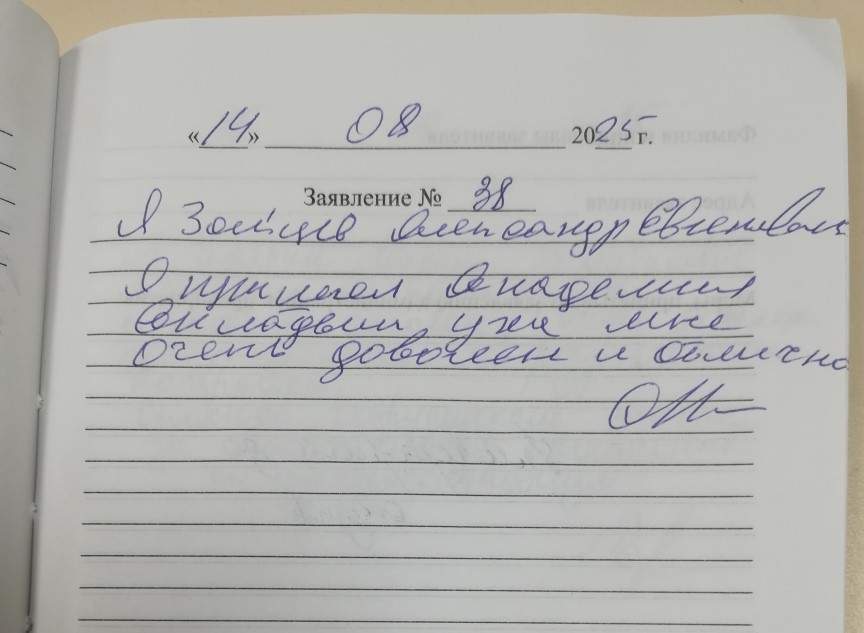 «14» 08 2025 г.
Заявление № 38
Я Зайцев Александр Евгениевич
Я приехал Академия
уже мне
очень доволен и отлично